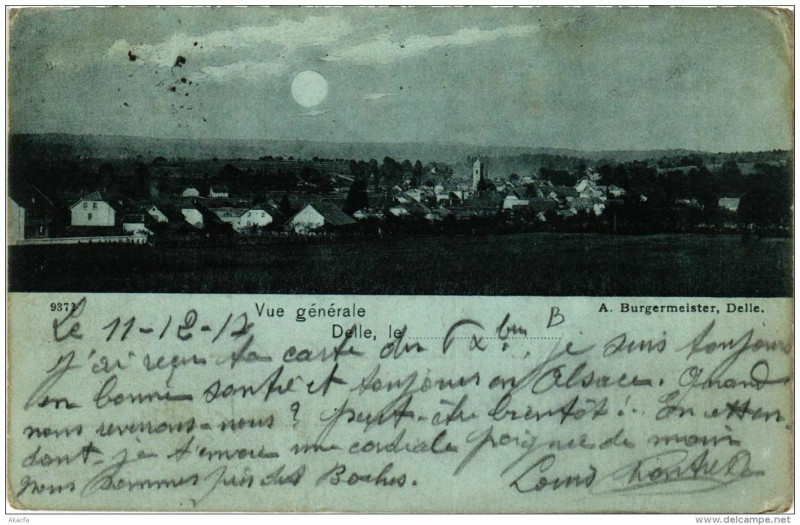 Vue générale
A. Burgermeister, Delle.
Delle, le
B
Le 11-12-17
J'ai reçu ta carte du je suis toujours
en bonne santé et toujours en Alsace. Quand
nous reverrons-nous? peut-être bientôt!.. En atten-
dant je t'envoie une cordiale poignée de main
nous sommes près des Boches. Louis
Akacfa
www.delcampe.net